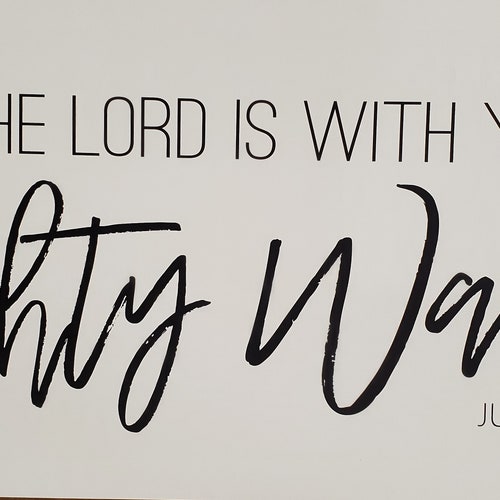 HE LORD IS WITH Y
hty Wa
JU